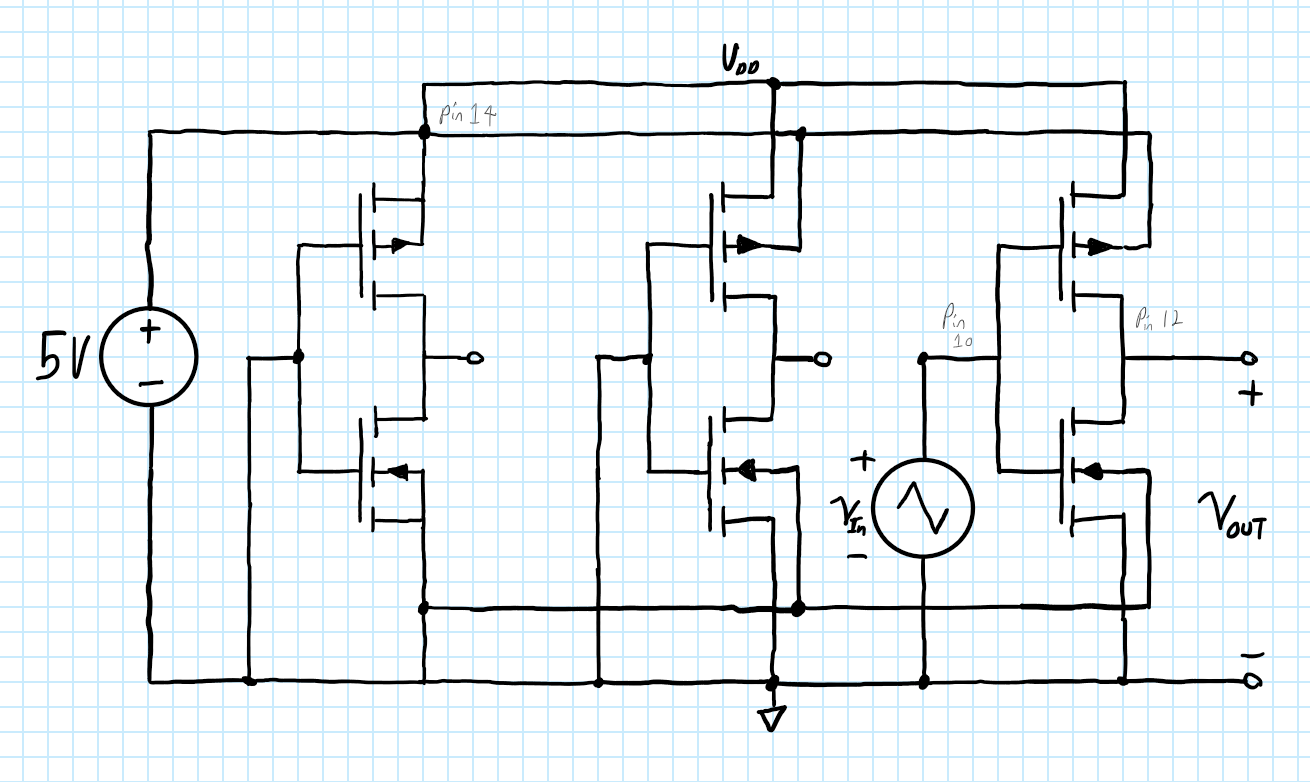 V_DD
Pin 14
5V
+
−
Pin
10
Pin 12
+
+
V_In
−
V_OUT
−